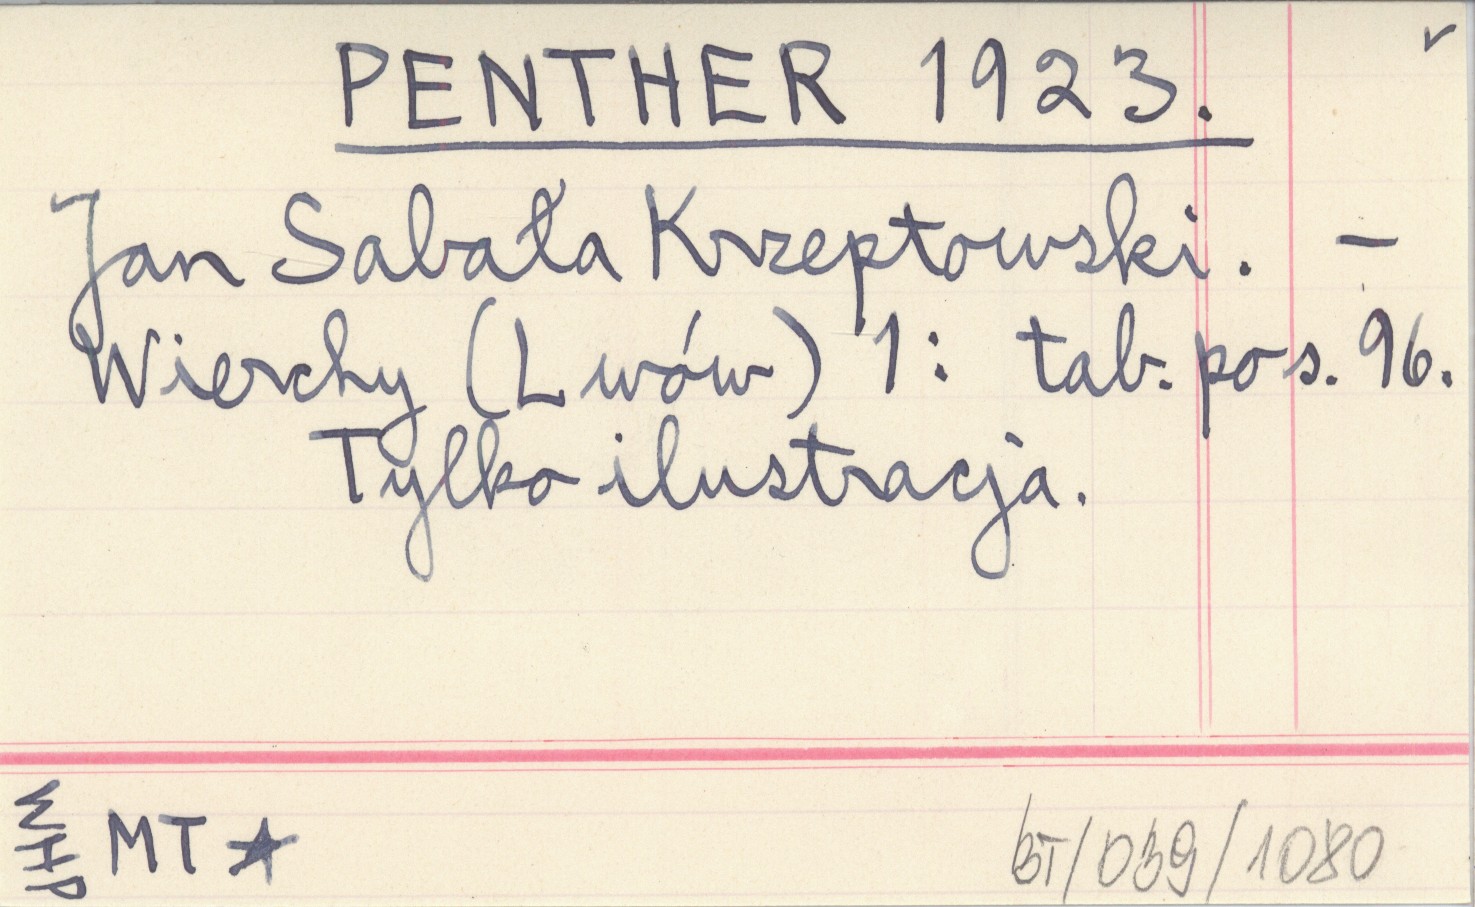 PENTHER 1923.
Jan Sabała Krzeptowski. —
Wierchy (Lwów) 1: tab. po s. 96.
Tylko ilustracja.
WHP
MT ★
BT/039/1080